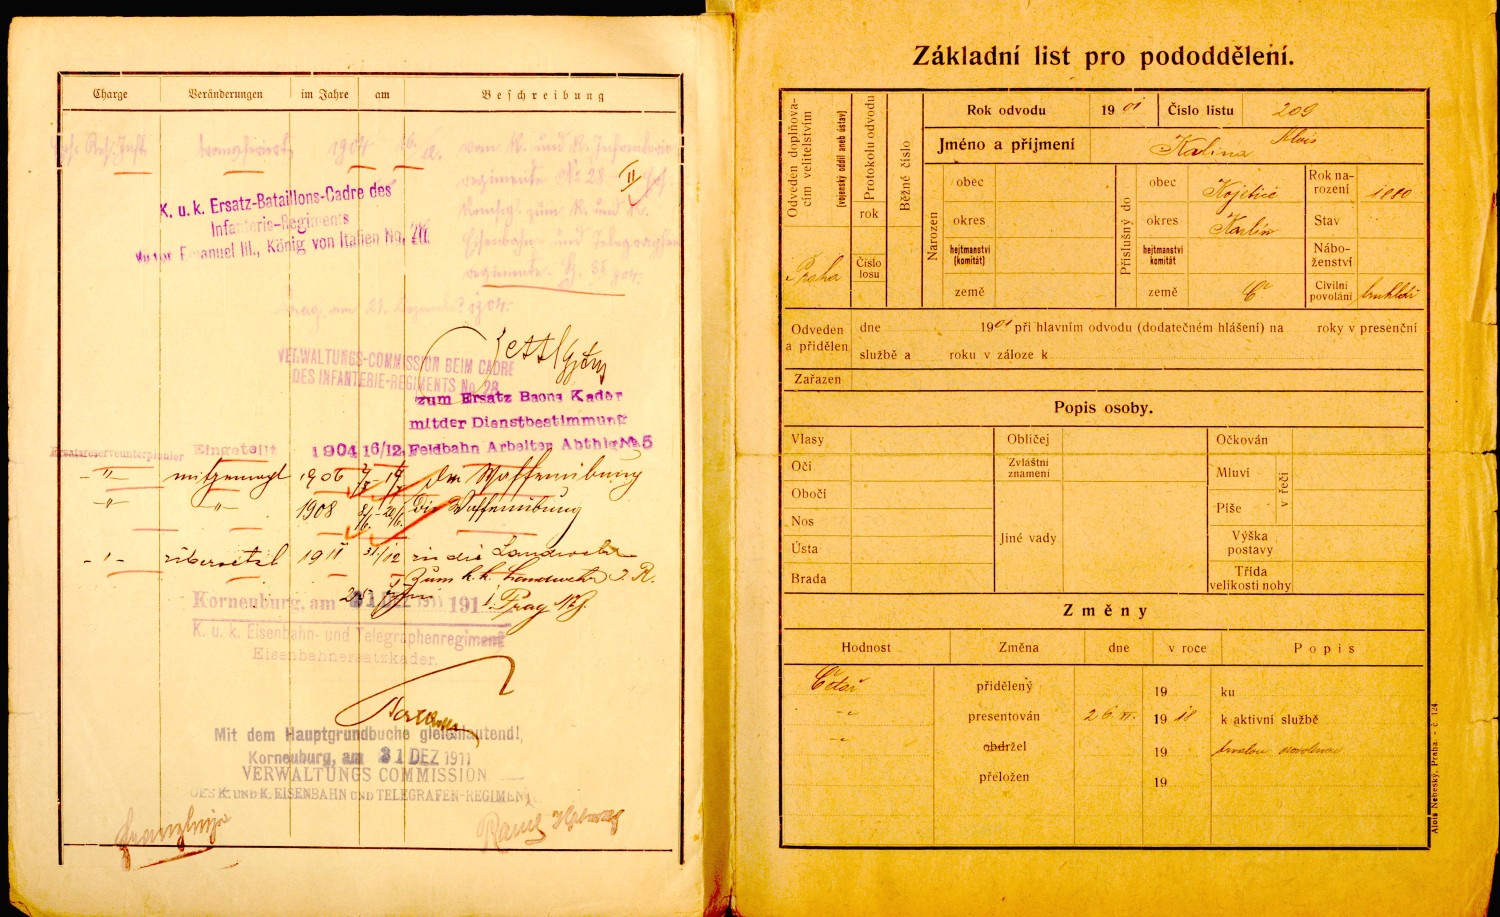 Charge Veränderungen im Jahre am Beschreibung
transferiert 1904 16/12. vom K. und K. Infanterie
regimente No 28.
zum K. und K.
Eisenbahn- und Telegraphen
regimente.
Prag, am 21. Dezember 1904.
K. u. k. Ersatz-Bataillons-Cadre des
Infanterie-Regiments
Victor Emanuel III., König von Italien No. 28.
VERWALTUNGS-COMMISSION BEIM CADRE
DES INFANTERIE-REGIMENTS No 28
zum Ersatz Baons Kader
mitder Dienstbestimmung
Ersatzreserveunterpionier Eingeteilt 1904 16/12. Feldbahn Arbeiter Abthlg No 5
-"- mitgemacht 1906 die Waffenübung
-"- -"- 1908 die Waffenübung
-"- übersetzt 1911 31/12 in die Landwehr
zum k.k. Landwehr I. R.
Prag
Korneuburg, am 31 DEZ 1911 191
K. u. k. Eisenbahn- und Telegraphenregiment
Eisenbahnersatzkader.
Mit dem Hauptgrundbuche gleichlautend!
Korneuburg, am 31 DEZ 1911
VERWALTUNGS COMMISSION
DES K. UND K. EISENBAHN UND TELEGRAFEN-REGIMENT
Základní list pro pododdělení.
Odveden doplňovacím velitelstvím (vojenský oddíl aneb ústav)
Praha
Protokolu odvodu
rok
Číslo losu
Běžné číslo
Rok odvodu 1901 Číslo listu 209
Jméno a příjmení Kalina Alois
Narozen
obec
okres
hejtmanství (komitát)
země
Příslušný do
obec Kojetice
okres Karlín
hejtmanství komitát
země Č
Rok narození 1880
Stav
Náboženství
Civilní povolání truhlář
Odveden a přidělen
dne 1901 při hlavním odvodu (dodatečném hlášení) na roky v presenční
službě a roku v záloze k
Zařazen
Popis osoby.
Vlasy Obličej Očkován
Oči Zvláštní znamení Mluví v řeči
Obočí
Nos Jiné vady Píše
Ústa Výška postavy
Brada Třída velikosti nohy
Změny
Hodnost Změna dne v roce Popis
Četař přidělený 19 ku
-"- presentován 26.XI. 1918 k aktivní službě
-"- obdržel 19
přeložen 19
Alois Nebeský, Praha. - č. 124